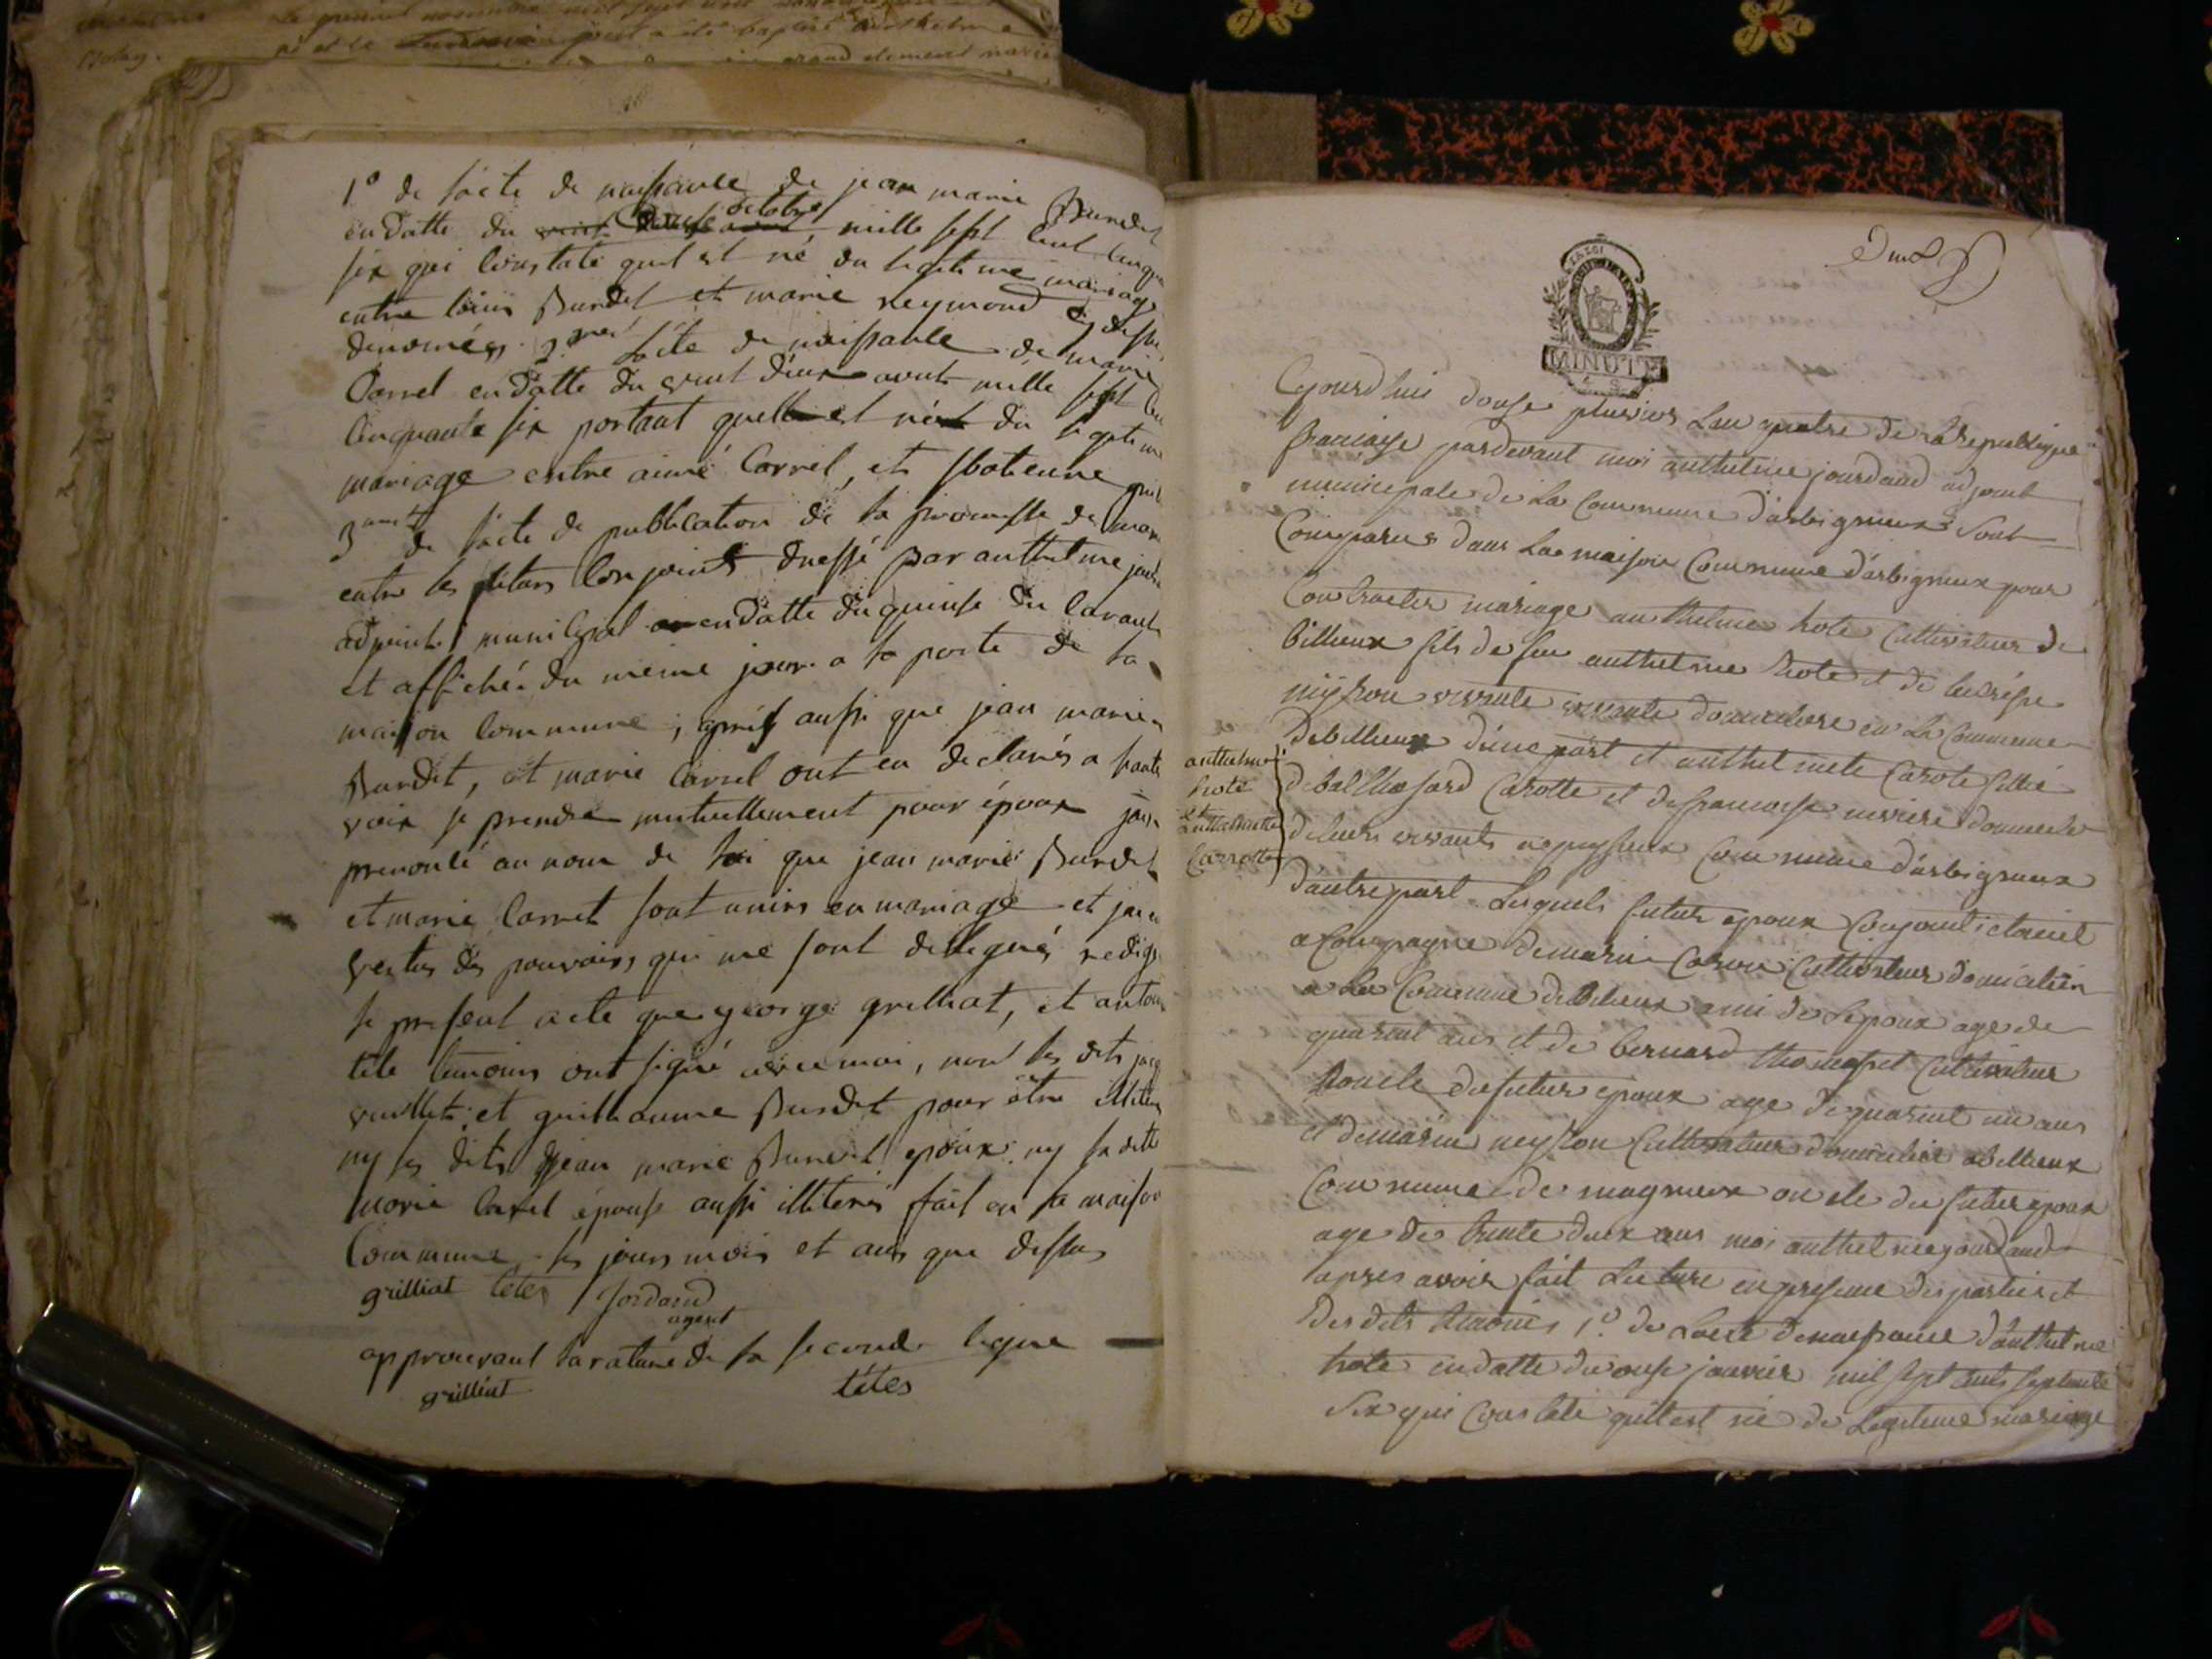 1º de lacte de naissance de jean marie Burdet
en datte du octobre mille sept cent cinqu
six qui constate quil est né du legitime mariage
entre louis Burdet et marie Reymond cy dessu
denomées lacte de naissance de marie
Carrel en datte du vint deux avout mille sept cen
cinquante six portant quelle est née du legitime
mariage entre aimé Carrel, et
3 de lacte de publication de la promesse de mar
entre les futurs conjoints dressé par anthelme jour
adjoint municipal en datte du quinse du Courant
et affiché du meme jour a la porte de la
maison Commune ; après aussi que jean marie
Burdet, et marie Carrel ont eu declarés a haute
voix se prendre mutuellement pour époux jai
prenoncé au nom de loi que jean marie Burdet
et marie Carret sont unirs en mariage et jai e
vertus des pouvoirs qui me sont delegués redigé
le present acte que george grilliat, et antoi
téte temoins ont signé avec moi, non les dits jacq
vuillet et guilliaume Burdet pour être illiter
ny les dits jean marie Burdet epoux ny la ditte
marie Carrel épouse aussi illiterés fait en la maison
Commune les jours mois et ans que dessus
grilliat tétes Jordand
agent
approuvant la rature de la seconde ligne
grilliat tétes
MINUTE
Cejourdhui douse pluvios Lan quatre de la Republique
francaise pardevant moi anthelme jourdand adjoint
municipale de La Commune d'arbigneux Sont
Comparus dans La maison Commune d'arbigneux pour
Contracter mariage anthelme hote Cultivateur de
billieux fils de feu anthelme hote et de
vivante domiciliere en La Commune
De billieux d'une part et anthelmete Carote fillie
anthelme
hote
et
anthelmette
Carrotte
de balthasard Carotte et de francoise domicile
de leurs vivants a Commune d'arbigneux
d'autre part Lesquels futurs epoux Conjoints etaient
acompagne de marin Cultivateur domicilier
a La Commune de Billieux ami de Lepoux age de
quarent ans et de bernard thomasset Cultivateur
honcle du futur epoux age de quarent un ans
et de marin neyron Cultivateur domicilié a billieux
Commune de magnieux oncle du futur epoux
age de trente deux ans moi anthelme jourdand
apres avoir fait Lecture en presence des parties et
Des dits temoins 1º de Lacte de naissance d'anthelme
hote en datte du onse janvier mil sept cents septente
Six qui Constate quil est né de Legitime mariage